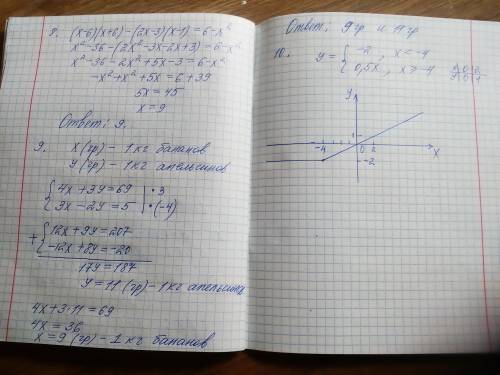 8. (x-6)(x+6) - (2x-3)(x-1) = 6-x²
x² - 36 - (2x² - 3x - 2x + 3) = 6-x²
x² - 36 - 2x² + 5x - 3 = 6-x²
-x² + x² + 5x = 6 + 39
5x = 45
x = 9
Ответ: 9.
9. x (гр) - 1 кг бананов
y (гр) - 1 кг апельсинов
{4x + 3y = 69 | · 3
{3x - 2y = 5 | · (-4)
+ {12x + 9y = 207
{-12x + 8y = -20
17y = 187
y = 11 (гр) - 1 кг апельсинов
4x + 3·11 = 69
4x = 36
x = 9 (гр) - 1 кг бананов
Ответ: 9 гр и 11 гр
10. y = { -2, x < -4
{ 0,5x, x > -4
x 0 2
y 0 1
y
-4 0 2 x
-2